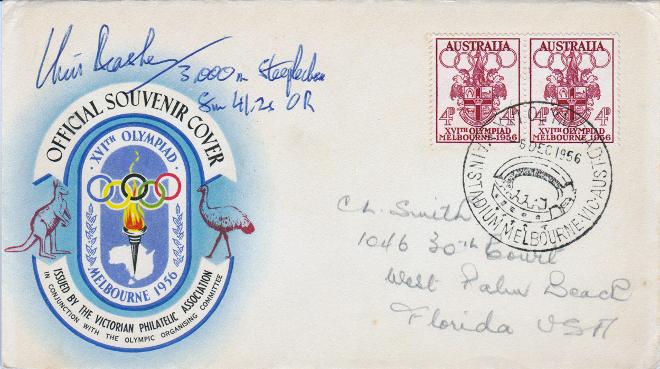 Chris Brasher
3,000m Steeplechase
8m 41.2s OR
OFFICIAL SOUVENIR COVER
XVITH OLYMPIAD
MELBOURNE 1956
ISSUED BY THE VICTORIAN PHILATELIC ASSOCIATION
IN CONJUNCTION WITH THE OLYMPIC ORGANISING COMMITTEE
AUSTRALIA AUSTRALIA
4D 4D 4D 4D
XVITH OLYMPIAD XVITH OLYMPIAD
MELBOURNE 1956 MELBOURNE 1956
DEC 1956
MAIN STADIUM MELBOURNE·VIC·AUST
Ch. Smith
1046 30th Court
West Palm Beach
Florida USA